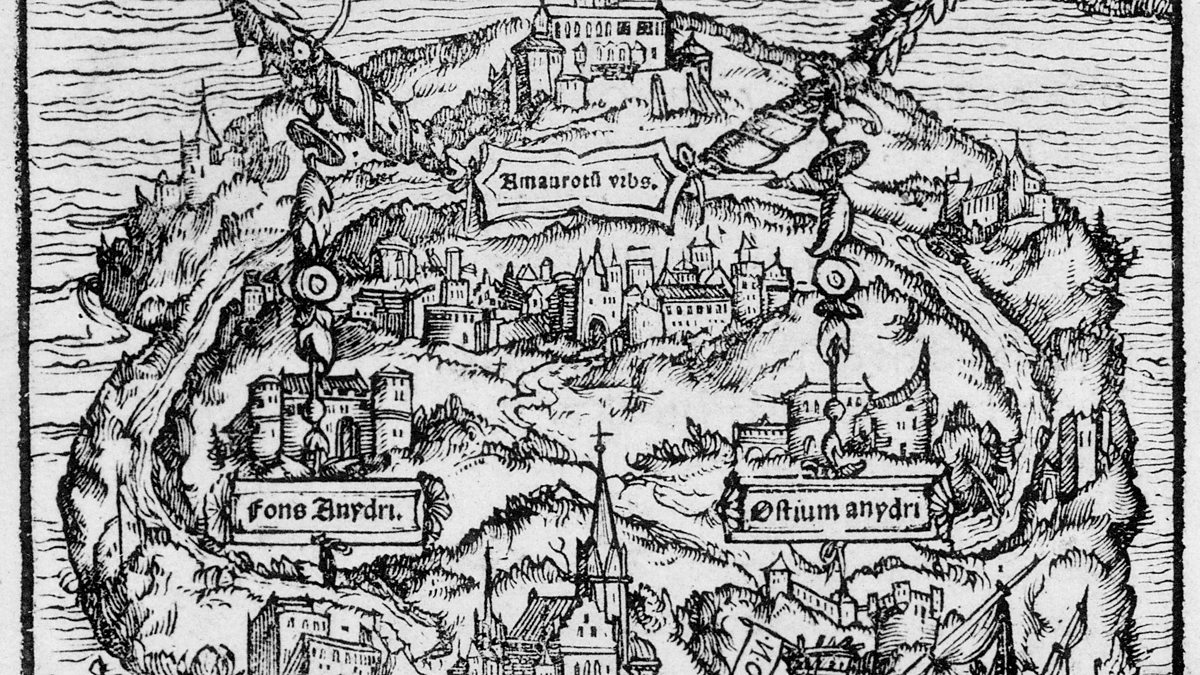 Amaurotū vrbs.
Fons Anydri.
Ostium anydri